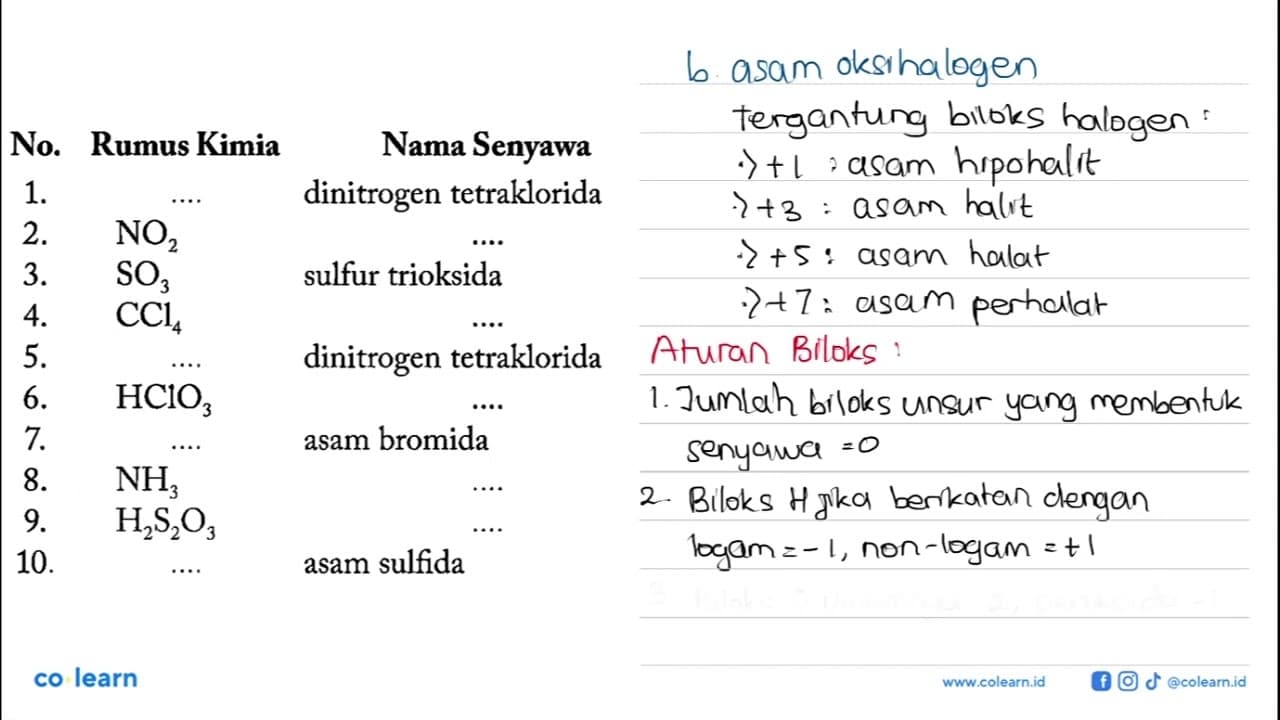 No. Rumus Kimia Nama Senyawa
1. .... dinitrogen tetraklorida
2. NO₂ ....
3. SO₃ sulfur trioksida
4. CCl₄ ....
5. .... dinitrogen tetraklorida
6. HClO₃ ....
7. .... asam bromida
8. NH₃ ....
9. H₂S₂O₃ ....
10. .... asam sulfida
b. asam oksihalogen
tergantung biloks halogen :
·> +1 : asam hipohalit
·> +3 : asam halit
·> +5 : asam halat
·> +7 : asam perhalat
Aturan Biloks :
1. Jumlah biloks unsur yang membentuk
senyawa = 0
2. Biloks H jika berikatan dengan
logam = -1, non-logam = +1
co learn
www.colearn.id @colearn.id